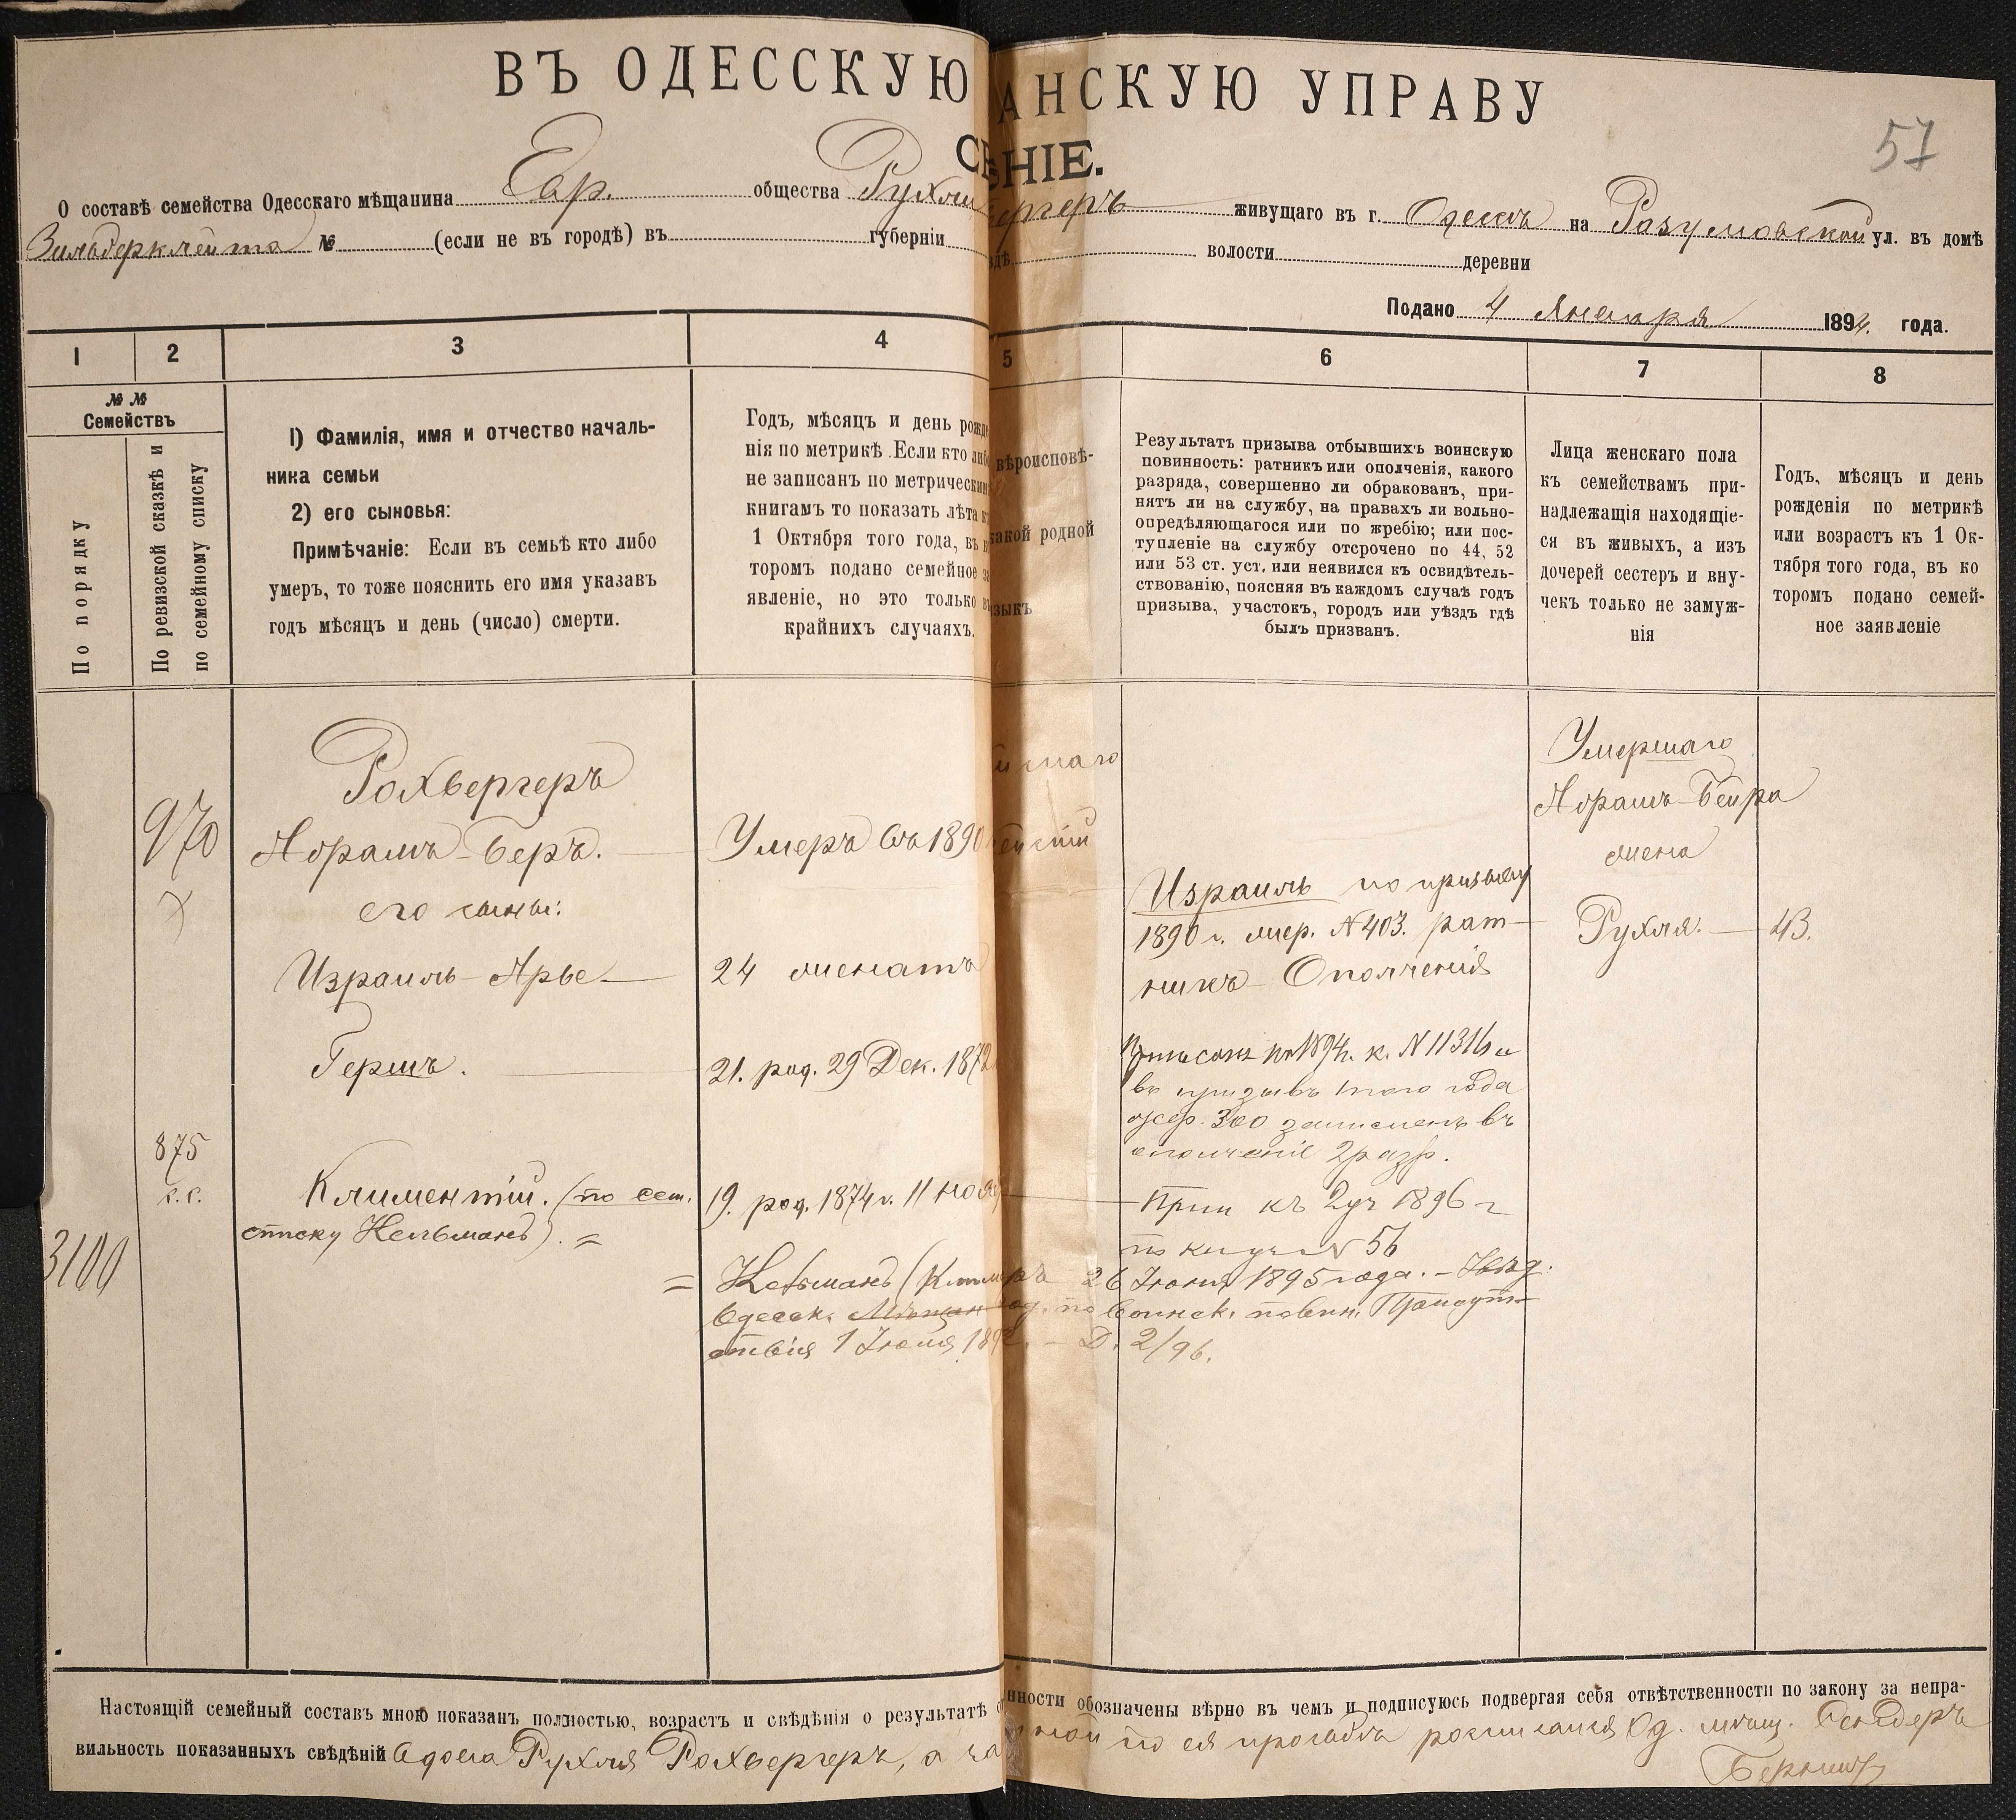 ВЪ ОДЕССКУЮ АНСКУЮ УПРАВУ
57
НІЕ.
О составѣ семейства Одесскаго мѣщанина Евр. общества Рухли бергеръ живущаго въ г. Одессѣ на Разумовской ул. въ домѣ
Зильберклейта № (если не въ городѣ) въ губерніи волости деревни
Подано 4 Января 1894. года.
1 2 3 4 5 6 7 8
№ №
Семействъ
По порядку
По ревизской сказкѣ и
по семейному списку
1) Фамилія, имя и отчество началь-
ника семьи
2) его сыновья:
Примѣчаніе: Если въ семьѣ кто либо
умеръ, то тоже пояснить его имя указавъ
годъ мѣсяцъ и день (число) смерти.
Годъ, мѣсяцъ и день рожде
нія по метрикѣ. Если кто либо
не записанъ по метрическим
книгамъ то показать лѣта к
1 Октября того года, въ к
торомъ подано семейное за
явленіе, но это только въ
крайнихъ случаяхъ.
вѣроисповѣ-
какой родной
зыкъ
Результатъ призыва отбывшихъ воинскую
повинность: ратникъ или ополченія, какого
разряда, совершенно ли обракованъ, при-
нятъ ли на службу, на правахъ ли вольно-
опредѣляющагося или по жребію; или пос-
тупленіе на службу отсрочено по 44, 52
или 53 ст. уст. или неявился къ освидѣтель-
ствованію, поясняя въ каждомъ случаѣ годъ
призыва, участокъ, городъ или уѣздъ гдѣ
былъ призванъ.
Лица женскаго пола
къ семействамъ при-
надлежащія находящіе-
ся въ живыхъ, а изъ
дочерей сестеръ и вну-
чекъ только не замуж-
нія
Годъ, мѣсяцъ и день
рожденія по метрикѣ
или возрастъ къ 1 Ок-
тября того года, въ ко
торомъ подано семей-
ное заявленіе
970
Рохбергеръ
Абрамъ-Беръ. Умеръ въ 1890
его сыны:
Израиль-Арье 24 женатъ
Гершъ. 21. род. 29 Дек. 1872
875
с.с.
Климентій. (по сем. 19. род. 1874 г. 11 ноя
списку Кельманъ). =
3100
Израиль по призыву
1890 г. жер. № 403. рат-
никъ Ополченія
1894. к. № 11316 и
въ призывъ того года
жер. 300 записанъ въ
ополченіе 2 разр.
Прип къ 2 уч 1896 г
№ 56
= Кельманъ 26 Іюня 1895 года.
Одесск. по воинск. повин. Присут-
ствія 1 Іюня Д. 2/96.
Умершаго
Абрамъ-Бейра
жена
Рухля. 43.
Настоящій семейный составъ мною показанъ полностью, возрастъ и свѣдѣнія о результатѣ нности обозначены вѣрно въ чемъ и подписуюсь подвергая себя отвѣтственности по закону за непра-
вильность показанныхъ свѣдѣній Вдова Рухля Рохбергеръ, а по ея просьбѣ росписался Од. мѣщ. Сендеръ